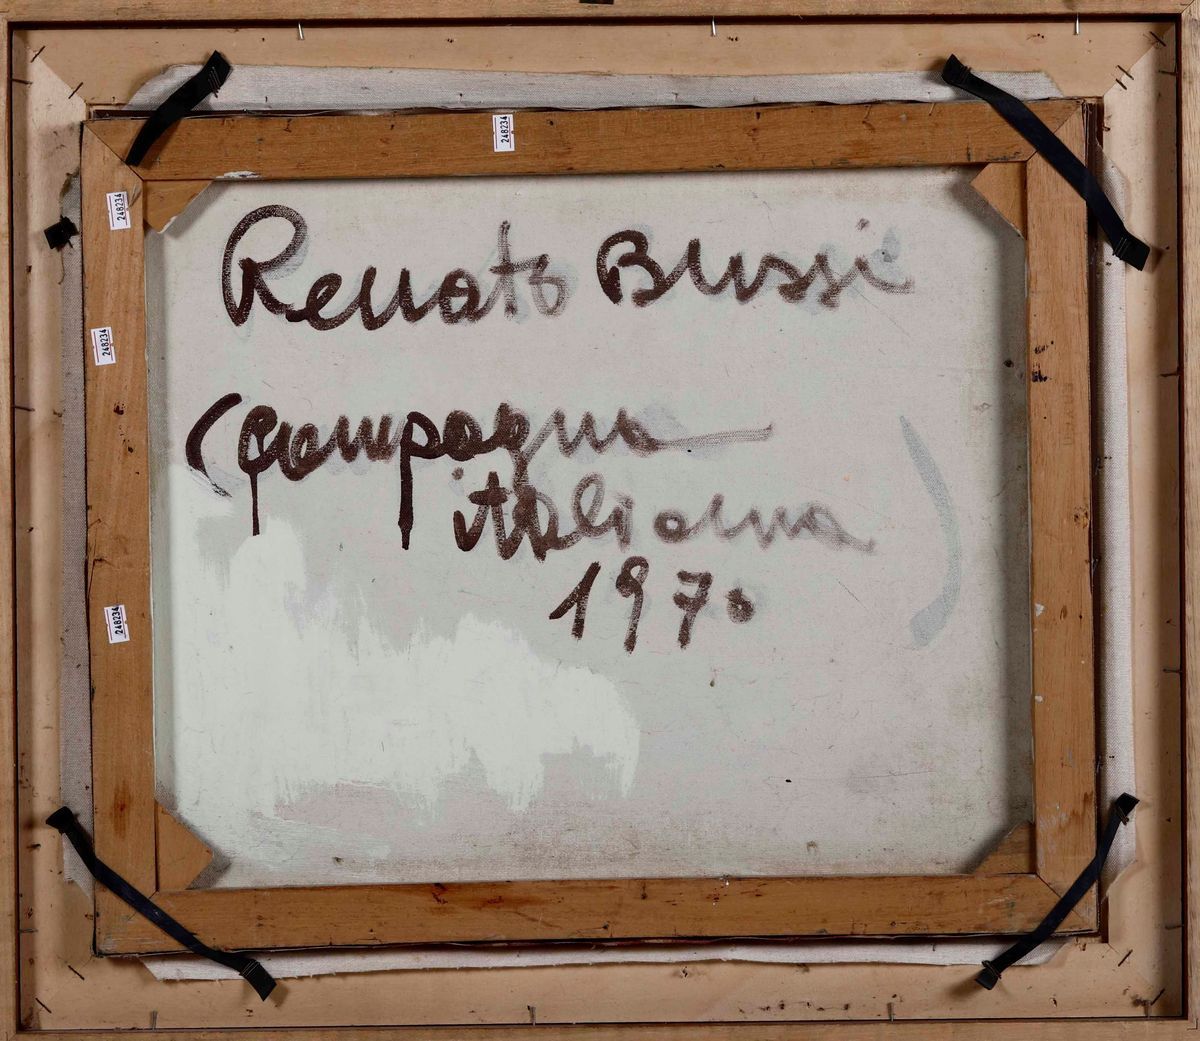 248234
248234
Renato Bussi
248234
(Campagna
italiana)
1970
248234